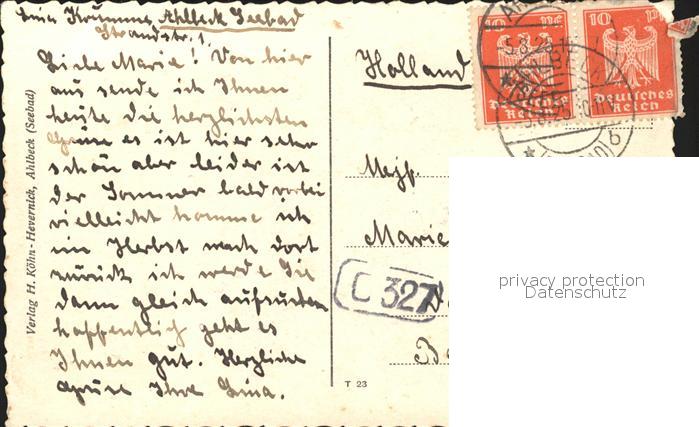 Lina Krumme, Ahlbeck Seebad
Strandstr. 1.
Liebe Marie! Von hier
aus sende ich Ihnen
heute die herzlichsten
Grüße es ist hier sehr
schön aber leider ist
der Sommer bald vorbei
vielleicht komme ich
im Herbst nach dort
zurück ich werde Sie
dann gleich aufsuchen
hoffentlich geht es
Ihnen gut. Herzliche
Grüsse Ihre Lina.
Verlag H. Köhn-Hevernick, Ahlbeck (Seebad)
T 23
10 Pf
Deutsches
Reich
10 Pf
Deutsches
Reich
b
Holland
Mejf.
Marie
C 327
privacy protection
Datenschutz